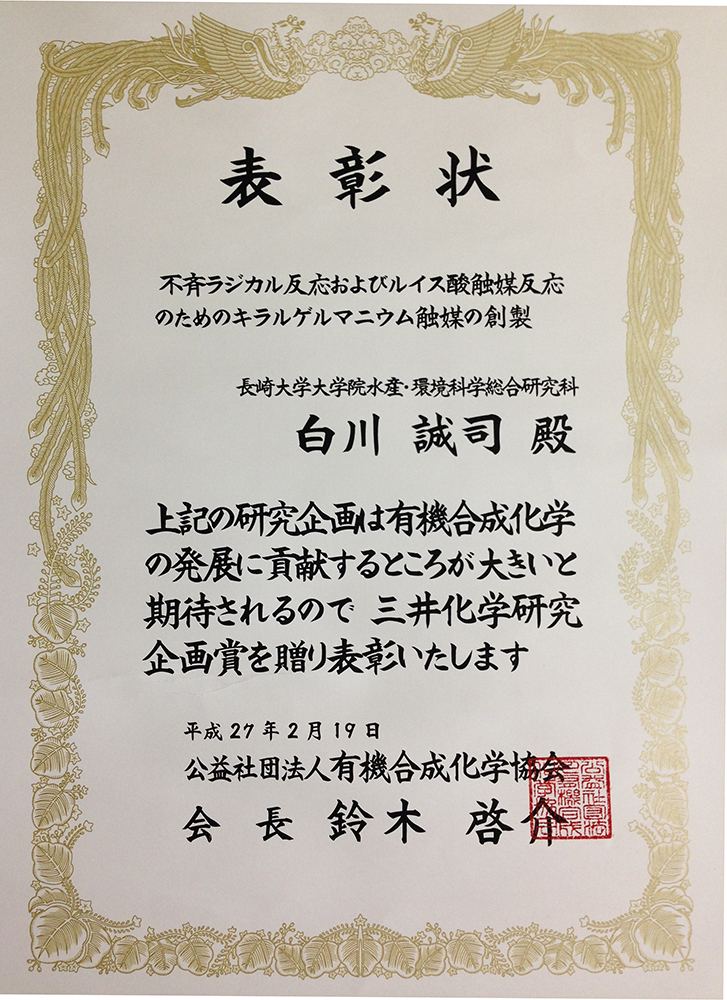 表彰状
不斉ラジカル反応およびルイス酸触媒反応
のためのキラルゲルマニウム触媒の創製
長崎大学大学院水産・環境科学総合研究科
白川 誠司 殿
上記の研究企画は有機合成化学
の発展に貢献するところが大きいと
期待されるので 三井化学研究
企画賞を贈り表彰いたします
平成27年2月19日
公益社団法人有機合成化学協会
会長 鈴木 啓介